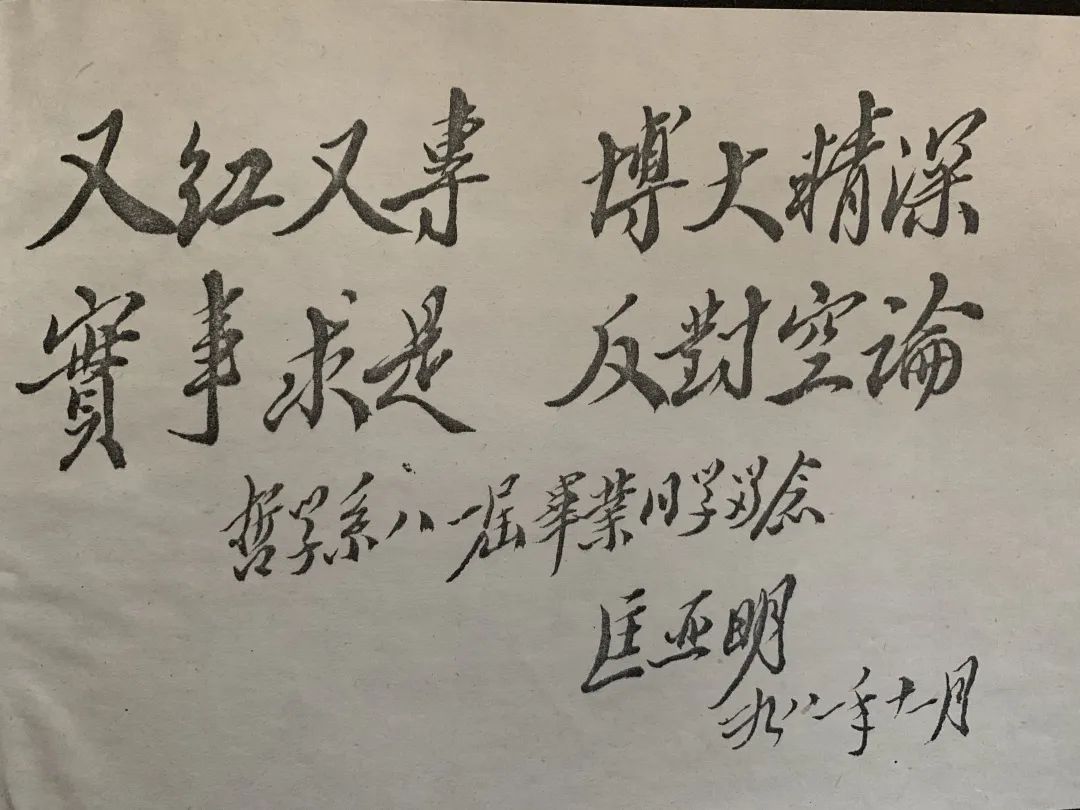 又红又專 博大精深
實事求是 反對空論
哲学系八一届畢業同学留念
匡亚明
一九八一年十一月